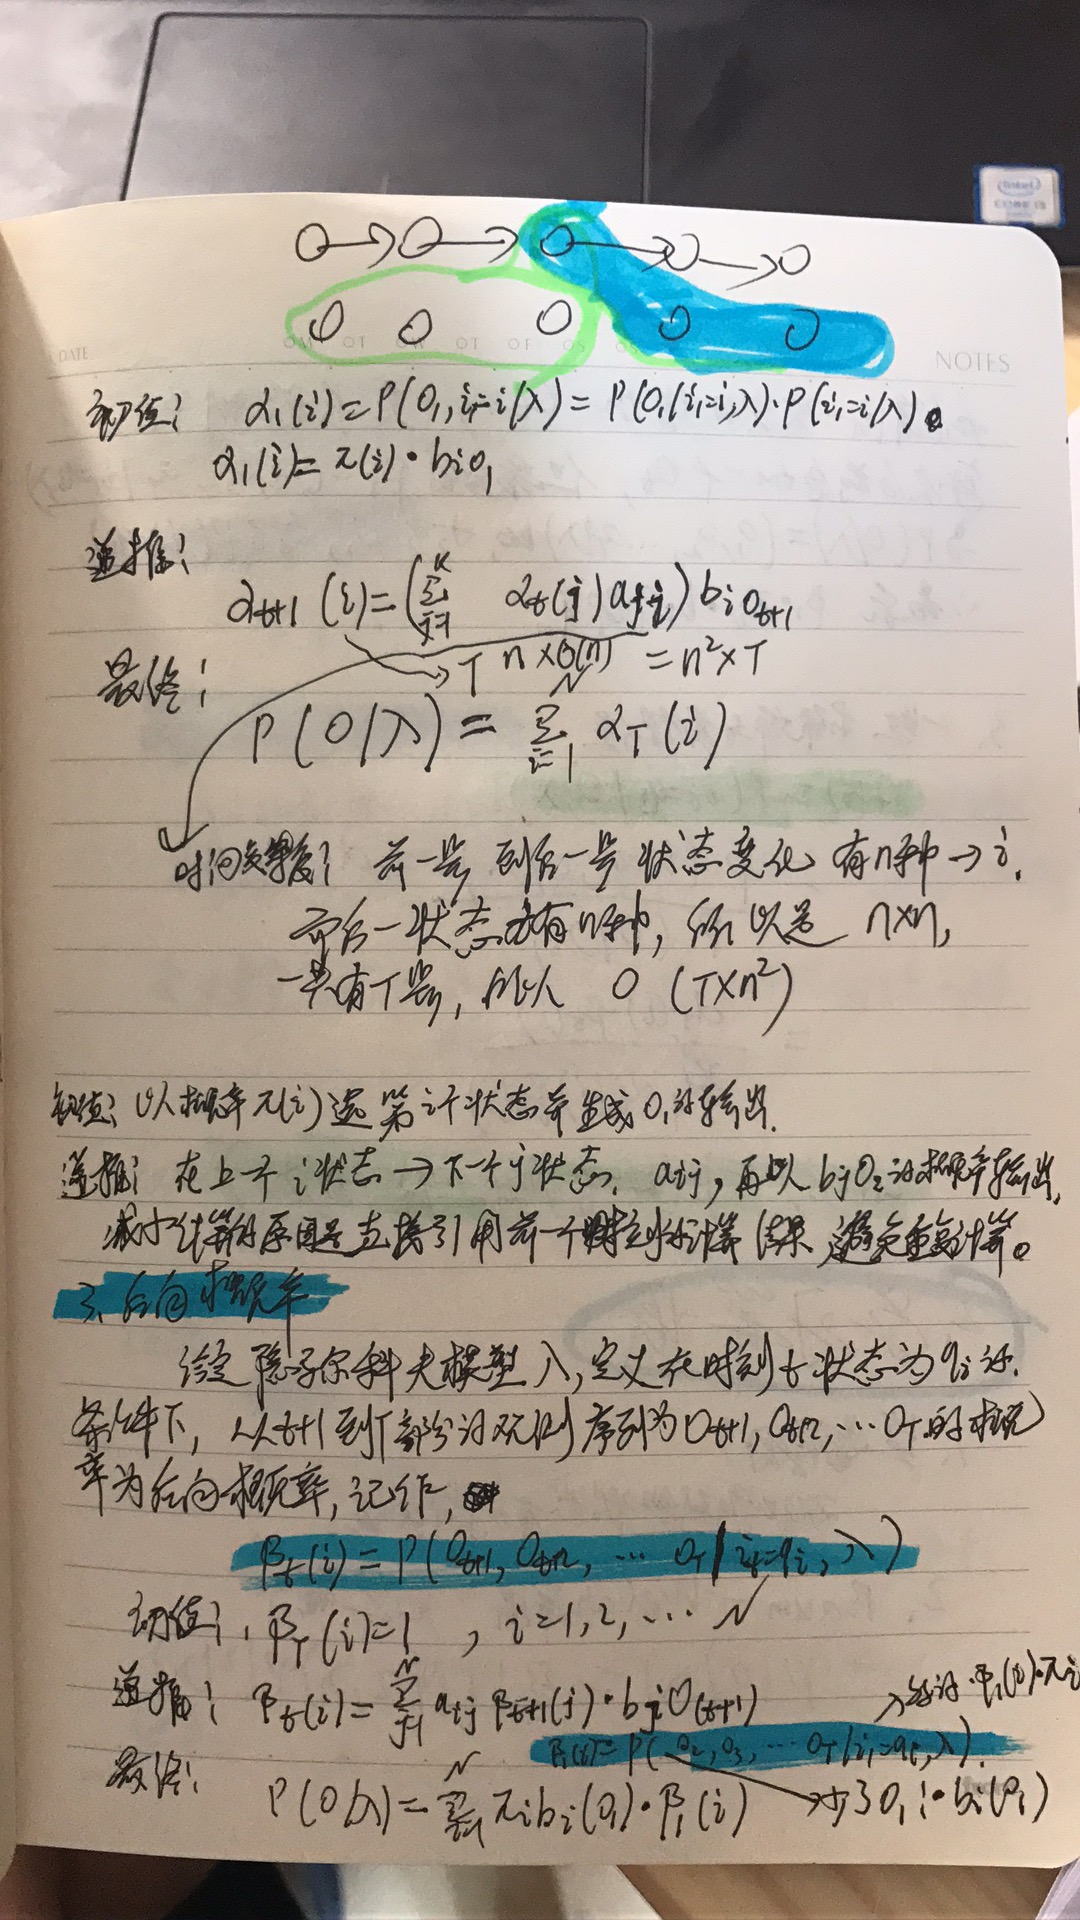 intel
CORE i5
DATE
NOTES
初值: α₁(i)=P(O₁,i₁=i|λ)=P(O₁|i₁=i,λ)·P(i₁=i|λ)。
α₁(i)=π(i)·biO₁
递推:
αt+1(i)=(Σ αt(j)aji)biOt+1
T n×O(n)=n²×T
最终:
P(O|λ)=Σ αT(i)
时间复杂度: 前一步到后一步状态变化有n种→i.
而后一状态也有n种,所以是n×n,
一共有T步,所以 O(T×n²)
初值:以概率π(i)选第i个状态并生成O₁的输出.
递推:在上一个i状态→下一个j状态. aij,再以bjO₂的概率输出.
减少计算的原因是直接引用前一个时刻的计算结果,避免重复计算。
3、后向概率
给定隐马尔科夫模型λ,定义在时刻t状态为qi的.
条件下,从t+1到T部分的观测序列为Ot+1,Ot+2,…OT的概
率为后向概率,记作,
βt(i)=P(Ot+1,Ot+2,…OT|it=qi,λ)
初值: βT(i)=1, i=1,2,…N
递推: βt(i)=Σ aijβt+1(j)·bjO(t+1)
β₁(i)=P(O₂,O₃,…OT|i₁=qi,λ).
最终:
P(O|λ)=Σ πibi(O₁)·β₁(i) →少了O₁!·bi(O₁)